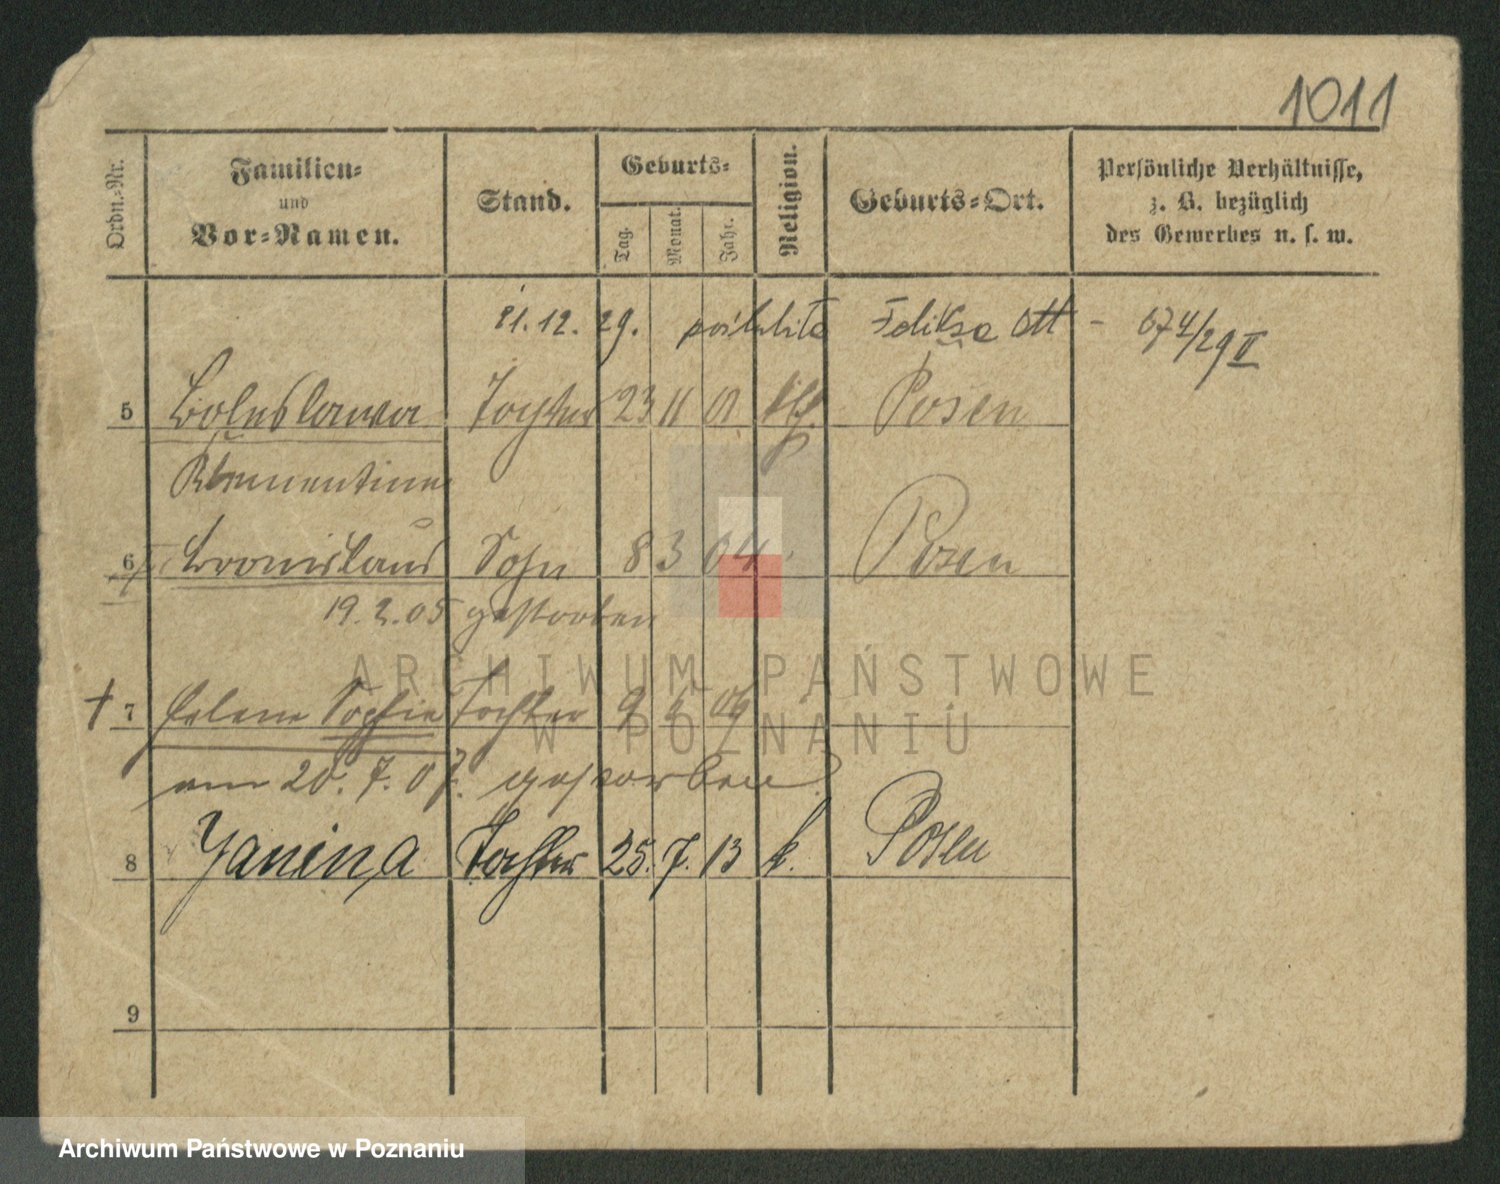 1011
Ordn.-Nr.
Familien-
und
Vor-Namen.
Stand.
Geburts-
Tag.
Monat.
Jahr.
Religion.
Geburts-Ort.
Persönliche Verhältnisse,
z. B. bezüglich
des Gewerbes u. s. w.
21.12.29. poślubiła Feliksa Ott - 674/29 II
5 Boleslawa Tochter 23 11 01 kth. Posen
Klementine
6 Bronislaus Sohn 8 3 04 Posen
19.2.05 gestorben
† 7 Helene Sophie Tochter 9 06
am 20.7.07. gestorben
8 Janina Tochter 25. 7. 13 k. Posen
9
ARCHIWUM PAŃSTWOWE
W POZNANIU
Archiwum Państwowe w Poznaniu